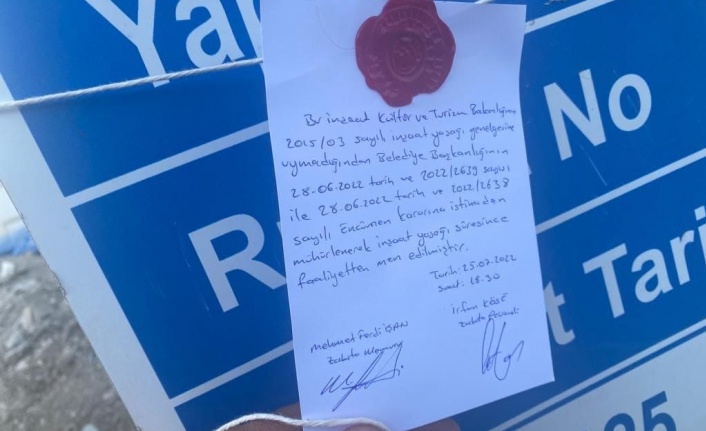 Ya
No
R
t Tari
25
Bu inşaat Kültür ve Turizm Bakanlığının
2015/03 sayılı inşaat yasağı genelgesine
uymadığından Belediye Başkanlığının
28-06.2022 tarih ve 2022/2639 sayısı
ile 28.06.2022 tarih ve 2022/2638
sayılı Encümen kararına istinaden
mühürlenerek inşaat yasağı süresince
faaliyetten men edilmiştir.
Tarih: 25.07.2022
Saat: 18.30
Mehmet Ferdi
Zabıta Memuru
İrfan KÖSE
Zabıta